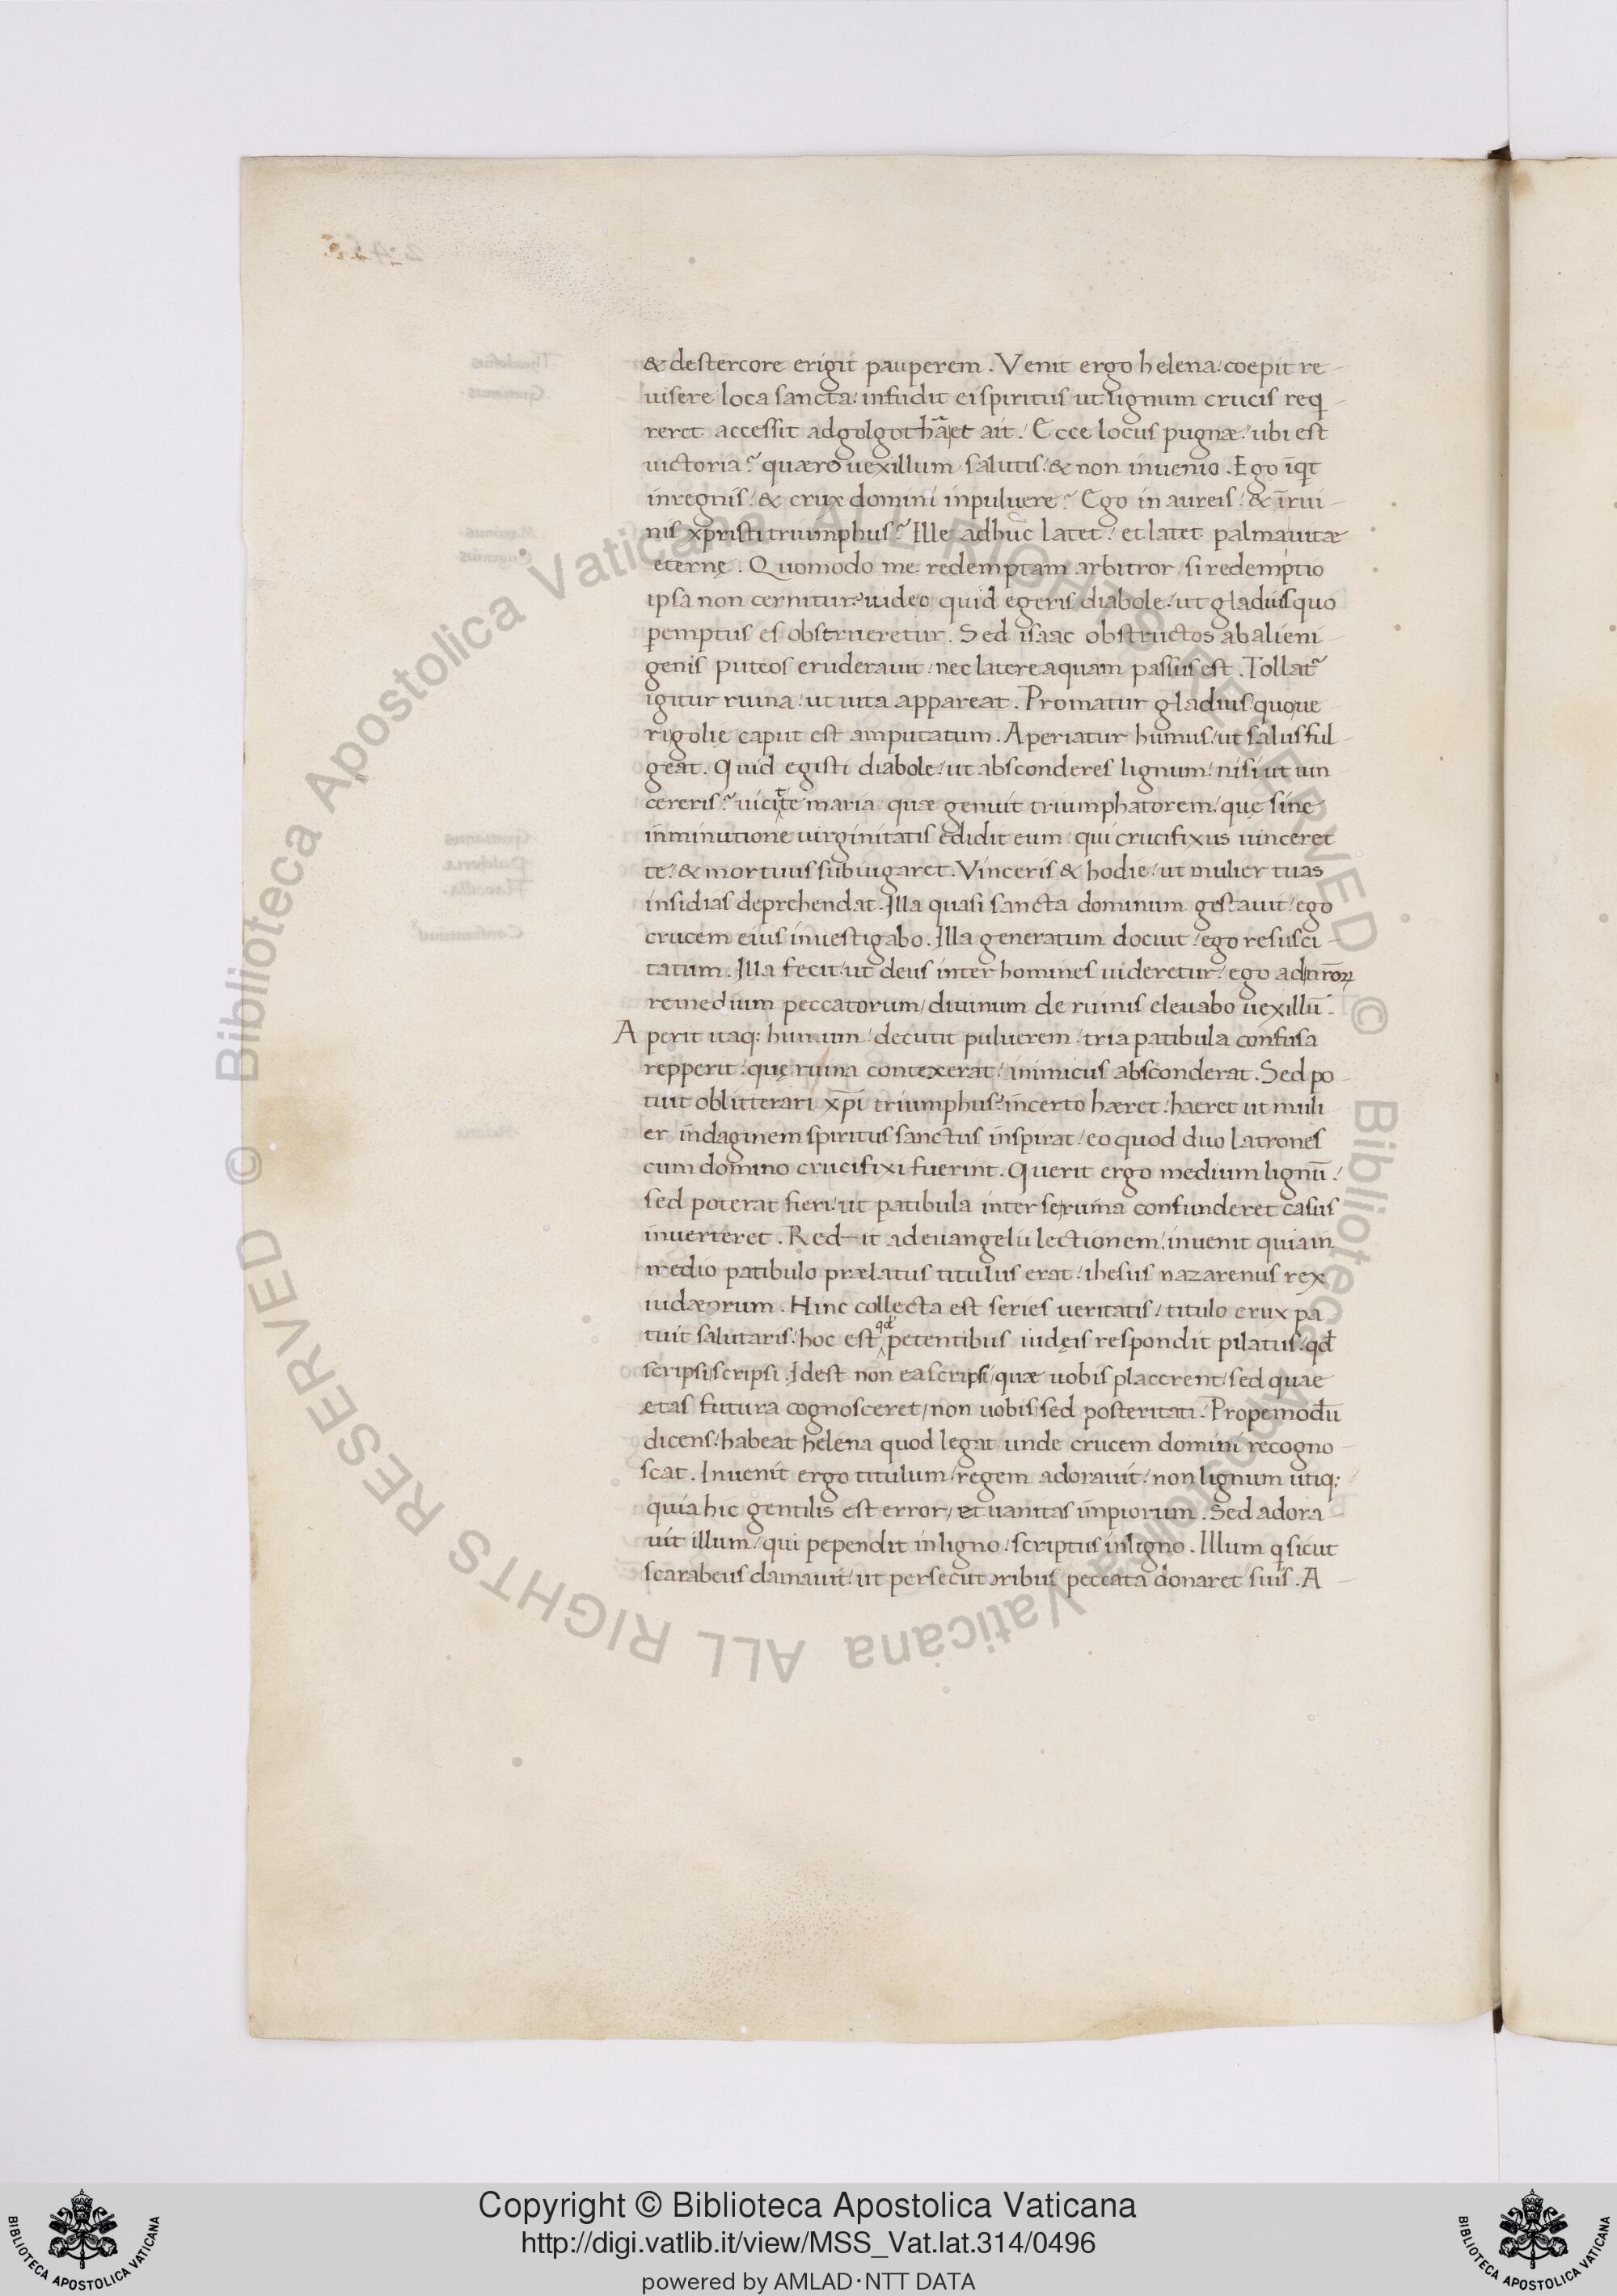 & destercore erigit pauperem. Venit ergo helena/ coepit re-
uisere loca sancta/ infudit eispiritus ut lignum crucis reqi-
reret accessit adgolgothā et ait. Ecce locus pugnæ/ ubi est
uictoria? quæro uexillum salutis/ & non inuenio. Ego īqt
inregnis/ & crux domini inpuluere? Ego in aureis/ & īrui-
nis xpristi triumphus? Ille adhuc latet/ et latet palma uitæ
eternę. Quomodo me redemptam arbitror/ si redemptio
ipsa non cernitur? uideo quid egeris diabole/ ut gladius quo
pemptus es obstrueretur. Sed isaac obstructos abalieni-
genis puteos eruderauit/ nec latere aquam passus est. Tollat᷑
igitur ruina/ ut uita appareat. Promatur gladius/ quo ue
rigolię caput est amputatum. Aperiatur humus/ ut salus ful-
geat. Quid egisti diabole/ ut absconderes lignum/ nisi ut uin
cereris? uicit te maria quæ genuit triumphatorem/ quę sine
inminutione uirginitatis edidit eum/ qui crucifixus uinceret
te/ & mortuus subiugaret. Vinceris & hodie/ ut mulier tuas
insidias deprehendat. Illa quasi sancta dominum gestauit/ ego
crucem eius inuestigabo. Illa generatum docuit/ ego resusci-
tatum. Illa fecit/ ut deus inter homines uideretur/ ego ad nr̄oꝝ
remedium peccatorum/ diuinum de ruinis eleuabo uexillū.
Aperit itaq: humum/ decutit puluerem/ tria patibula confusa
repperit/ quę ruina contexerat/ inimicus absconderat. Sed po-
tuit oblitterari xp̄i triumphus/ incerto hæret/ haeret ut muli
er indaginem spiritus sanctus inspirat/ eo quod duo latrones
cum domino crucifixi fuerint. Querit ergo medium lignū/
sed poterat fieri/ ut patibula inter se ruina confunderet casus
inuerteret. Redit ad euangelii lectionem/ inuenit quia in
medio patibulo prælatus titulus erat/ ihesus nazarenus rex
iudæorum. Hinc collecta est series ueritatis/ titulo crux pa
tuit salutaris/ hoc est qđ petentibus iudęis respondit pilatus/ qđ
scripsi scripsi. Idest non ea scripsi/ quæ uobis placerent/ sed quae
ætas futura cognosceret/ non uobis/ sed posteritati. Propemodū
dicens/ habeat helena quod legat unde crucem domini recogno-
scat. Inuenit ergo titulum/ regem adorauit/ non lignum utiq:
quia hic gentilis est error/ et uanitas impiorum. Sed adora-
uit illum/ qui pependit inligno/ scriptus inligno. Illum q sicut
scarabeus clamauit/ ut persecutoribus peccata donaret suis. A-
Copyright © Biblioteca Apostolica Vaticana
http://digi.vatlib.it/view/MSS_Vat.lat.314/0496
powered by AMLAD·NTT DATA
BIBLIOTECA APOSTOLICA VATICANA
BIBLIOTECA APOSTOLICA VATICANA
© Biblioteca Apostolica Vaticana ALL RIGHTS RESERVED © Biblioteca Apostolica Vaticana ALL RIGHTS RESERVED